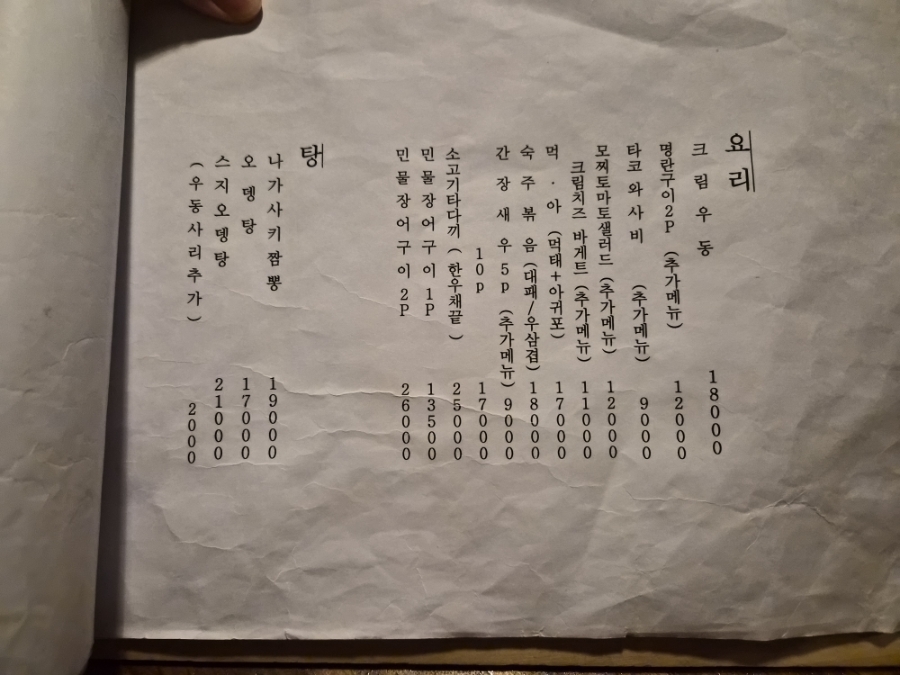 요리
크림우동 18000
명란구이2P (추가메뉴) 12000
타코와사비 (추가메뉴) 9000
모찌토마토샐러드 (추가메뉴) 12000
크림치즈 바게트 (추가메뉴) 11000
먹·아 (먹태+아귀포) 17000
숙주볶음 (대패/우삼겹) 18000
간장새우 5p (추가메뉴) 9000
10p 17000
소고기타다끼 (한우채끝) 25000
민물장어구이 1P 13500
민물장어구이 2P 26000
탕
나가사키짬뽕 19000
오뎅탕 17000
스지오뎅탕 21000
(우동사리추가) 2000